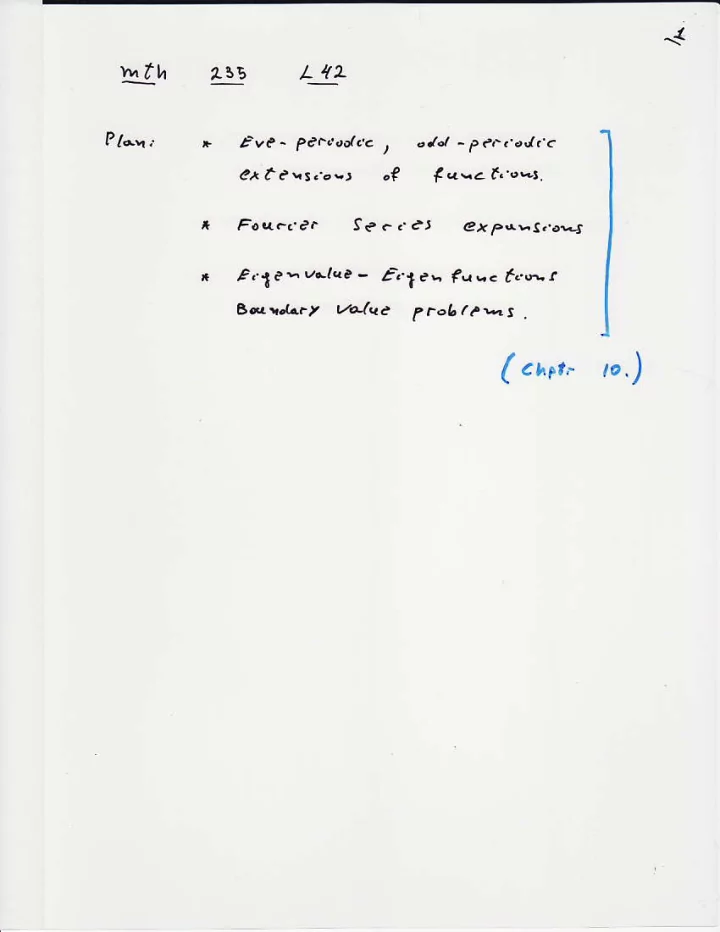 1
mth 235 L42
Plan: * Eve-periodic, odd-periodic
extensions of functions.
* Fourier Series expansions
* Eigenvalue-Eigenfunctions
Boundary value problems.
(Chptr 10.)